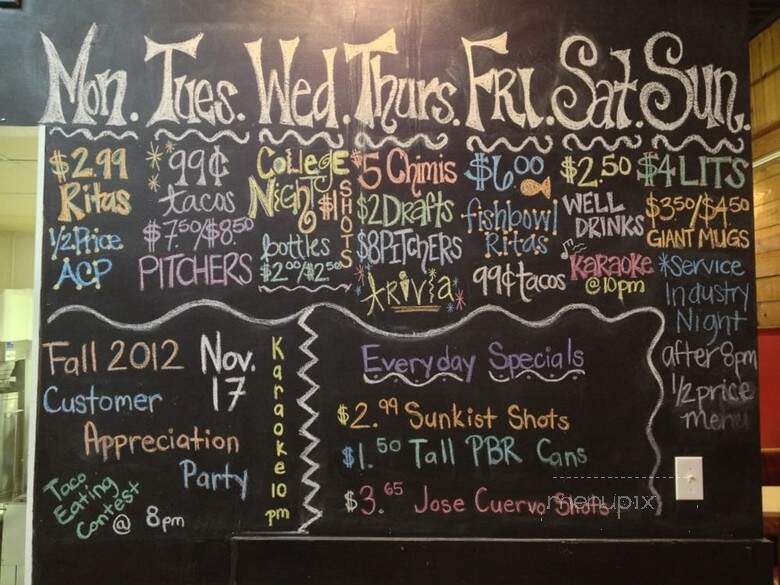 Mon. Tues. Wed. Thurs. Fri. Sat. Sun.
$2.99
Ritas
1/2 Price
ACP
99¢
tacos
$7.50/$8.50
PITCHERS
College
Night $1
SHOTS
bottles
$2.00/$2.50
$5 Chimis
$2 Drafts
$8 PITCHERS
TRIVIA
$6.00
fishbowl
Ritas
99¢ tacos
$2.50
WELL
DRINKS
KARAOKE
@10pm
$4 LITS
$3.50/$4.50
GIANT MUGS
*Service
Industry
Night
after 8pm
1/2 price
menu
Fall 2012
Customer
Appreciation
Party
Nov.
17
Taco
Eating
Contest
@ 8pm
Karaoke 10
pm
Everyday Specials
$2.99 Sunkist Shots
$1.50 Tall PBR Cans
$3.65 Jose Cuervo Shots
menupix